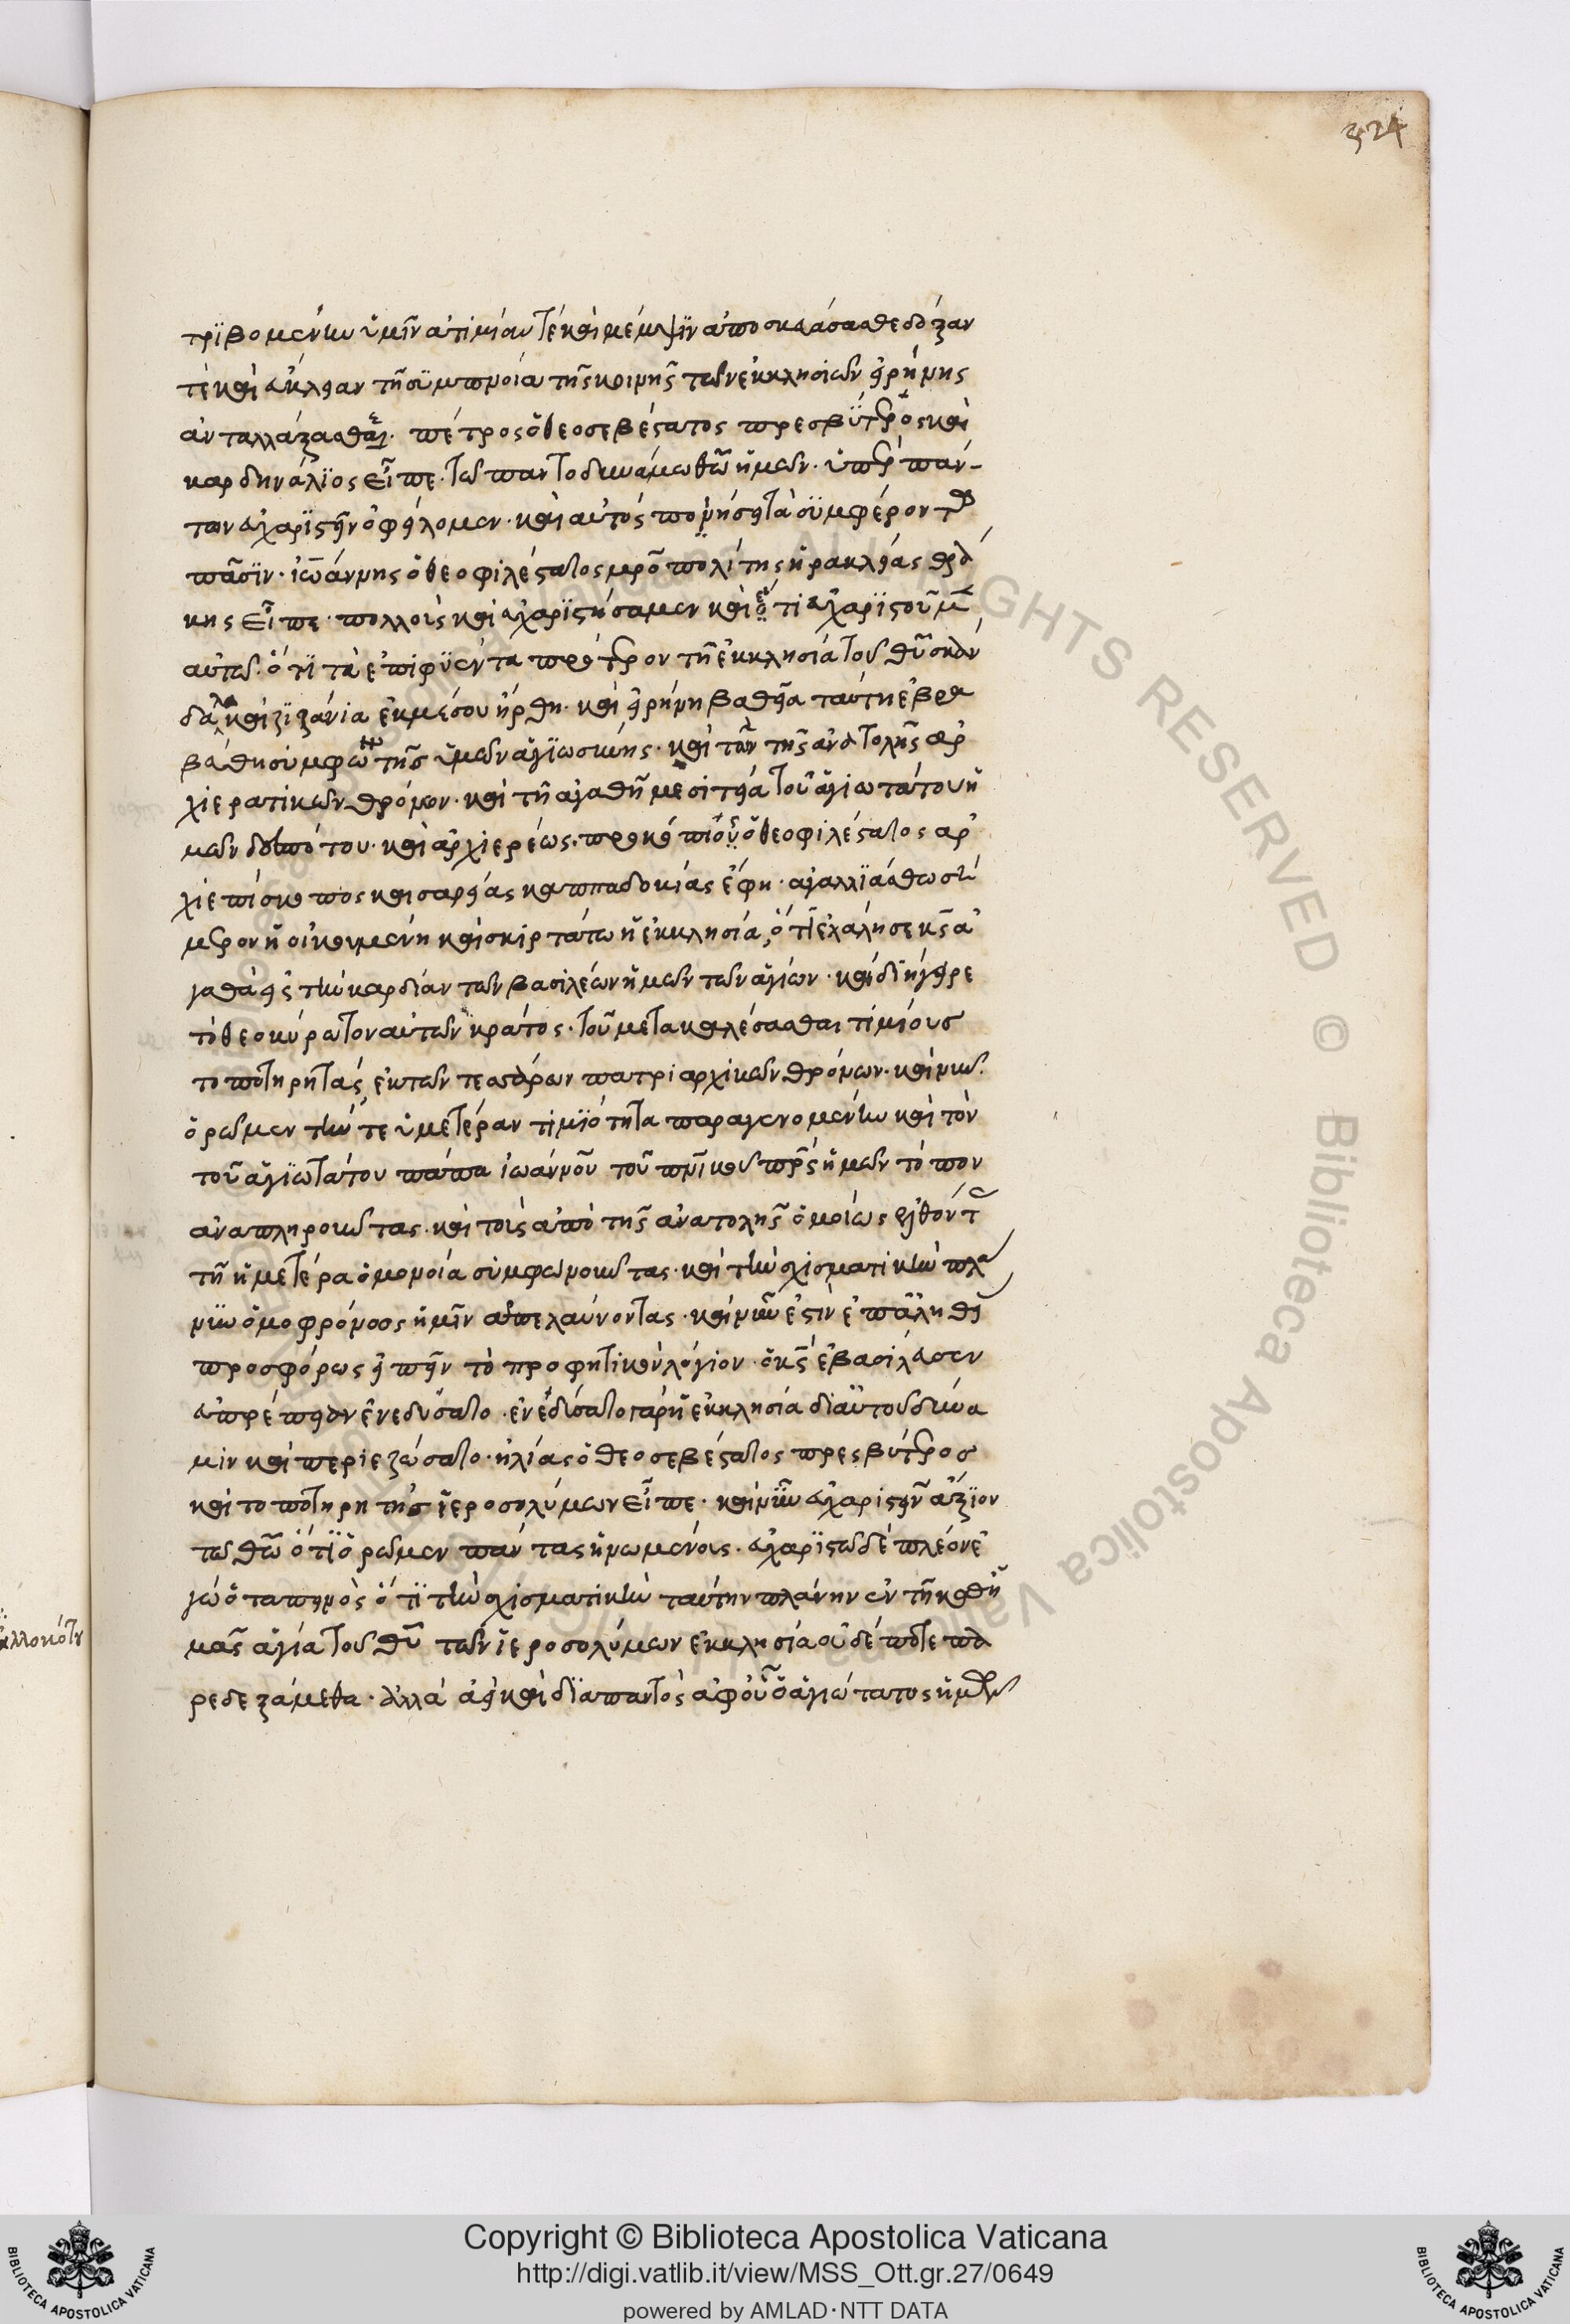 324
τριβομένην ὑμῖν ἀτιμίαν τὲ καὶ μέμψιν ἀποσκευάσασθε δόξαν
τὲ καὶ εὔκλειαν τῇ συμπνοία τῆς κοινῆς τῶν ἐκκλησιῶν εἰρήνης
ἀνταλλάξασθαι. πέτρος ὁ θεοσεβέστατος πρεσβύτερος καὶ
καρδηνάλιος εἶπε· τῶ παντοδυνάμω θῶ ἡμῶν· ὑπὲρ πάν-
των εὐχαριστεῖν ὀφείλομεν· καὶ αὐτὸς ποιήσει τὰ συμφέροντα
πᾶσιν· ἰωάννης ὁ θεοφιλέστατος μροπολίτης ἡρακλείας θρά
κης εἶπε· πολλοῖς καὶ εὐχαριστήσαμεν καὶ ἔτι εὐχαριστοῦμεν
αὐτῶ· ὅτι τὰ ἐπιφυέντα πρότερον τῇ ἐκκλησία τοῦ θῦ σκάν
δαλα καὶ ζιζάνια ἐκ μέσου ἤρθη· καὶ εἰρήνη βαθεῖα ταύτη ἐβρα
βεύθη συμφω τῆς ὑμῶν ἁγιωσύνης· καὶ τῶν τῆς ἀνατολῆς ἀρ
χιερατικῶν θρόνων· καὶ τῇ ἀγαθῇ μεσιτεία τοῦ ἁγιωτάτου ἡ
μῶν δεσπότου· καὶ ἀρχιερέως· προκόπιος ὁ θεοφιλέστατος ἀρ
χιεπίσκοπος καισαρείας καππαδοκίας ἔφη· ἀγαλλιάσθω σή
μερον ἡ οἰκουμένη καὶ σκιρτάτω ἡ ἐκκλησία, ὅτι ἐλάλησε κς ἀ
γαθὰ εἰς τὴν καρδίαν τῶν βασιλέων ἡμῶν τῶν ἁγίων· καὶ διήγειρε
τὸ θεοκύρωτον αὐτῶν κράτος· τοῦ μετακαλέσασθαι τιμίους
τοποτηρητὰς, ἐκ τῶν τεσσάρων πατριαρχικῶν θρόνων· καὶ νῦν
ὁρῶμεν τήν τε ὑμετέραν τιμιότητα παραγενομένην καὶ τὸν
τοῦ ἁγιωτάτου πάπα ἰωάννου τοῦ πνικοῦ πρς ἡμῶν τόπον
ἀναπληροῦντας· καὶ τοῖς ἀπὸ τῆς ἀνατολῆς ὁμοίως ἐλθόντας
τῇ ἡμετέρα ὁμονοία συμφωνοῦντας· καὶ τὴν σχισματικὴν πλά
νην ὁμοφρόνως ἡμῖν ἀπελαύνοντας· καὶ νῦν ἐστὶν ἐπ ἀληθεῖ
προσφόρως εἰπεῖν τὸ προφητικὸν λόγιον· ὁ κς ἐβασίλευσεν
εὐπρέπειαν ἐνεδύσατο· ἐνεδύσατο γὰρ ἡ ἐκκλησία δι αὐτοῦ δύνα
μιν καὶ περιεζώσατο· ἡλίας ὁ θεοσεβέστατος πρεσβύτερος
καὶ τοποτηρητὴς ἱεροσολύμων εἶπε· καὶ νῦν εὐχαριστεῖν ἄξιον
τῶ θῶ ὅτι ὁρῶμεν πάντας ἡνωμένοις· εὐχαριστῶ δὲ πλέον ἐ
γὼ ὁ ταπεινὸς ὅτι τὴν σχισματικὴν ταύτην πλάνην ἐν τῇ καθ ἡ
μᾶς ἁγία τοῦ θῦ τῶν ἱεροσολύμων ἐκκλησία οὐδέποτε πα
ρεδεξάμεθα· ἀλλὰ ἀεὶ καὶ διαπαντὸς ἀφ οὗ ὁ ἁγιώτατος ἡμῶν
Copyright © Biblioteca Apostolica Vaticana
http://digi.vatlib.it/view/MSS_Ott.gr.27/0649
powered by AMLAD·NTT DATA